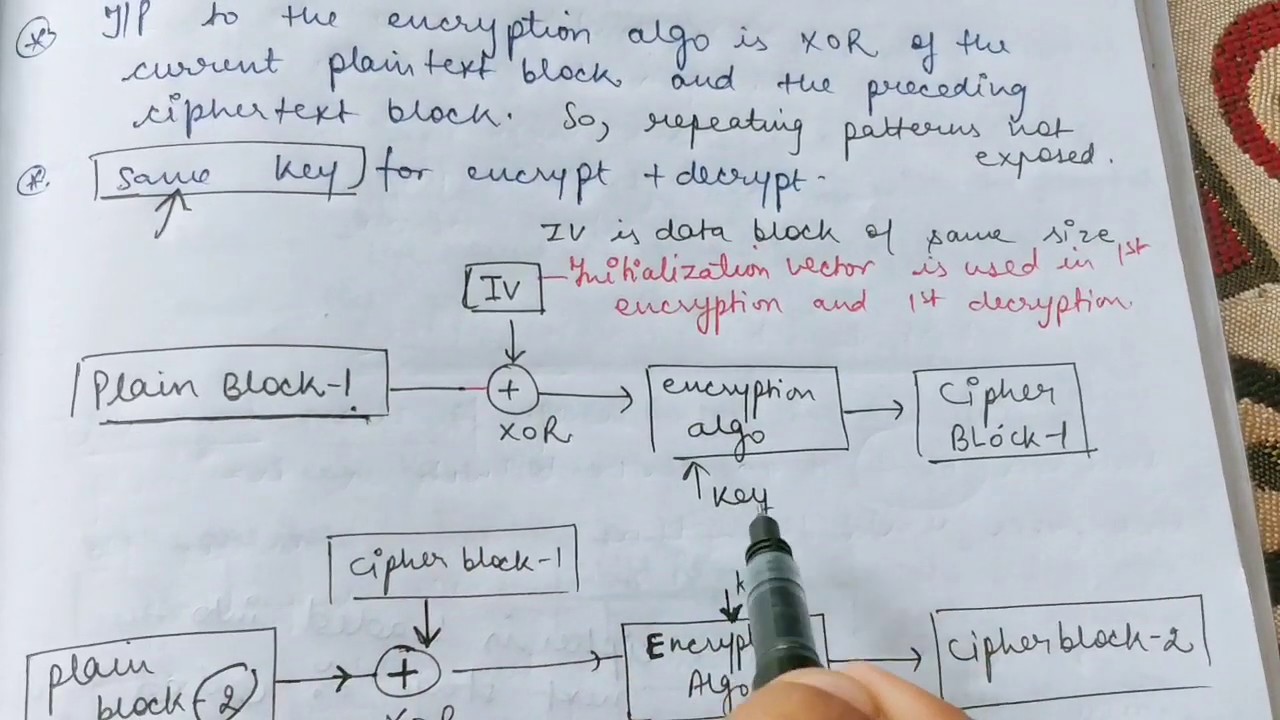 I/P to the encryption algo is XOR of the
current plain text block and the preceding
ciphertext block. So, repeating patterns not
exposed.
Same Key for encrypt + decrypt.
IV is data block of same size
IV - Initialization vector is used in 1st
encryption and 1st decryption.
Plain Block-1
+
XOR
encryption
algo
Cipher
BLOCK-1
Key
Cipher block-1
k
plain
block-2
+
XOR
Encrypt
Algo
Cipher block-2